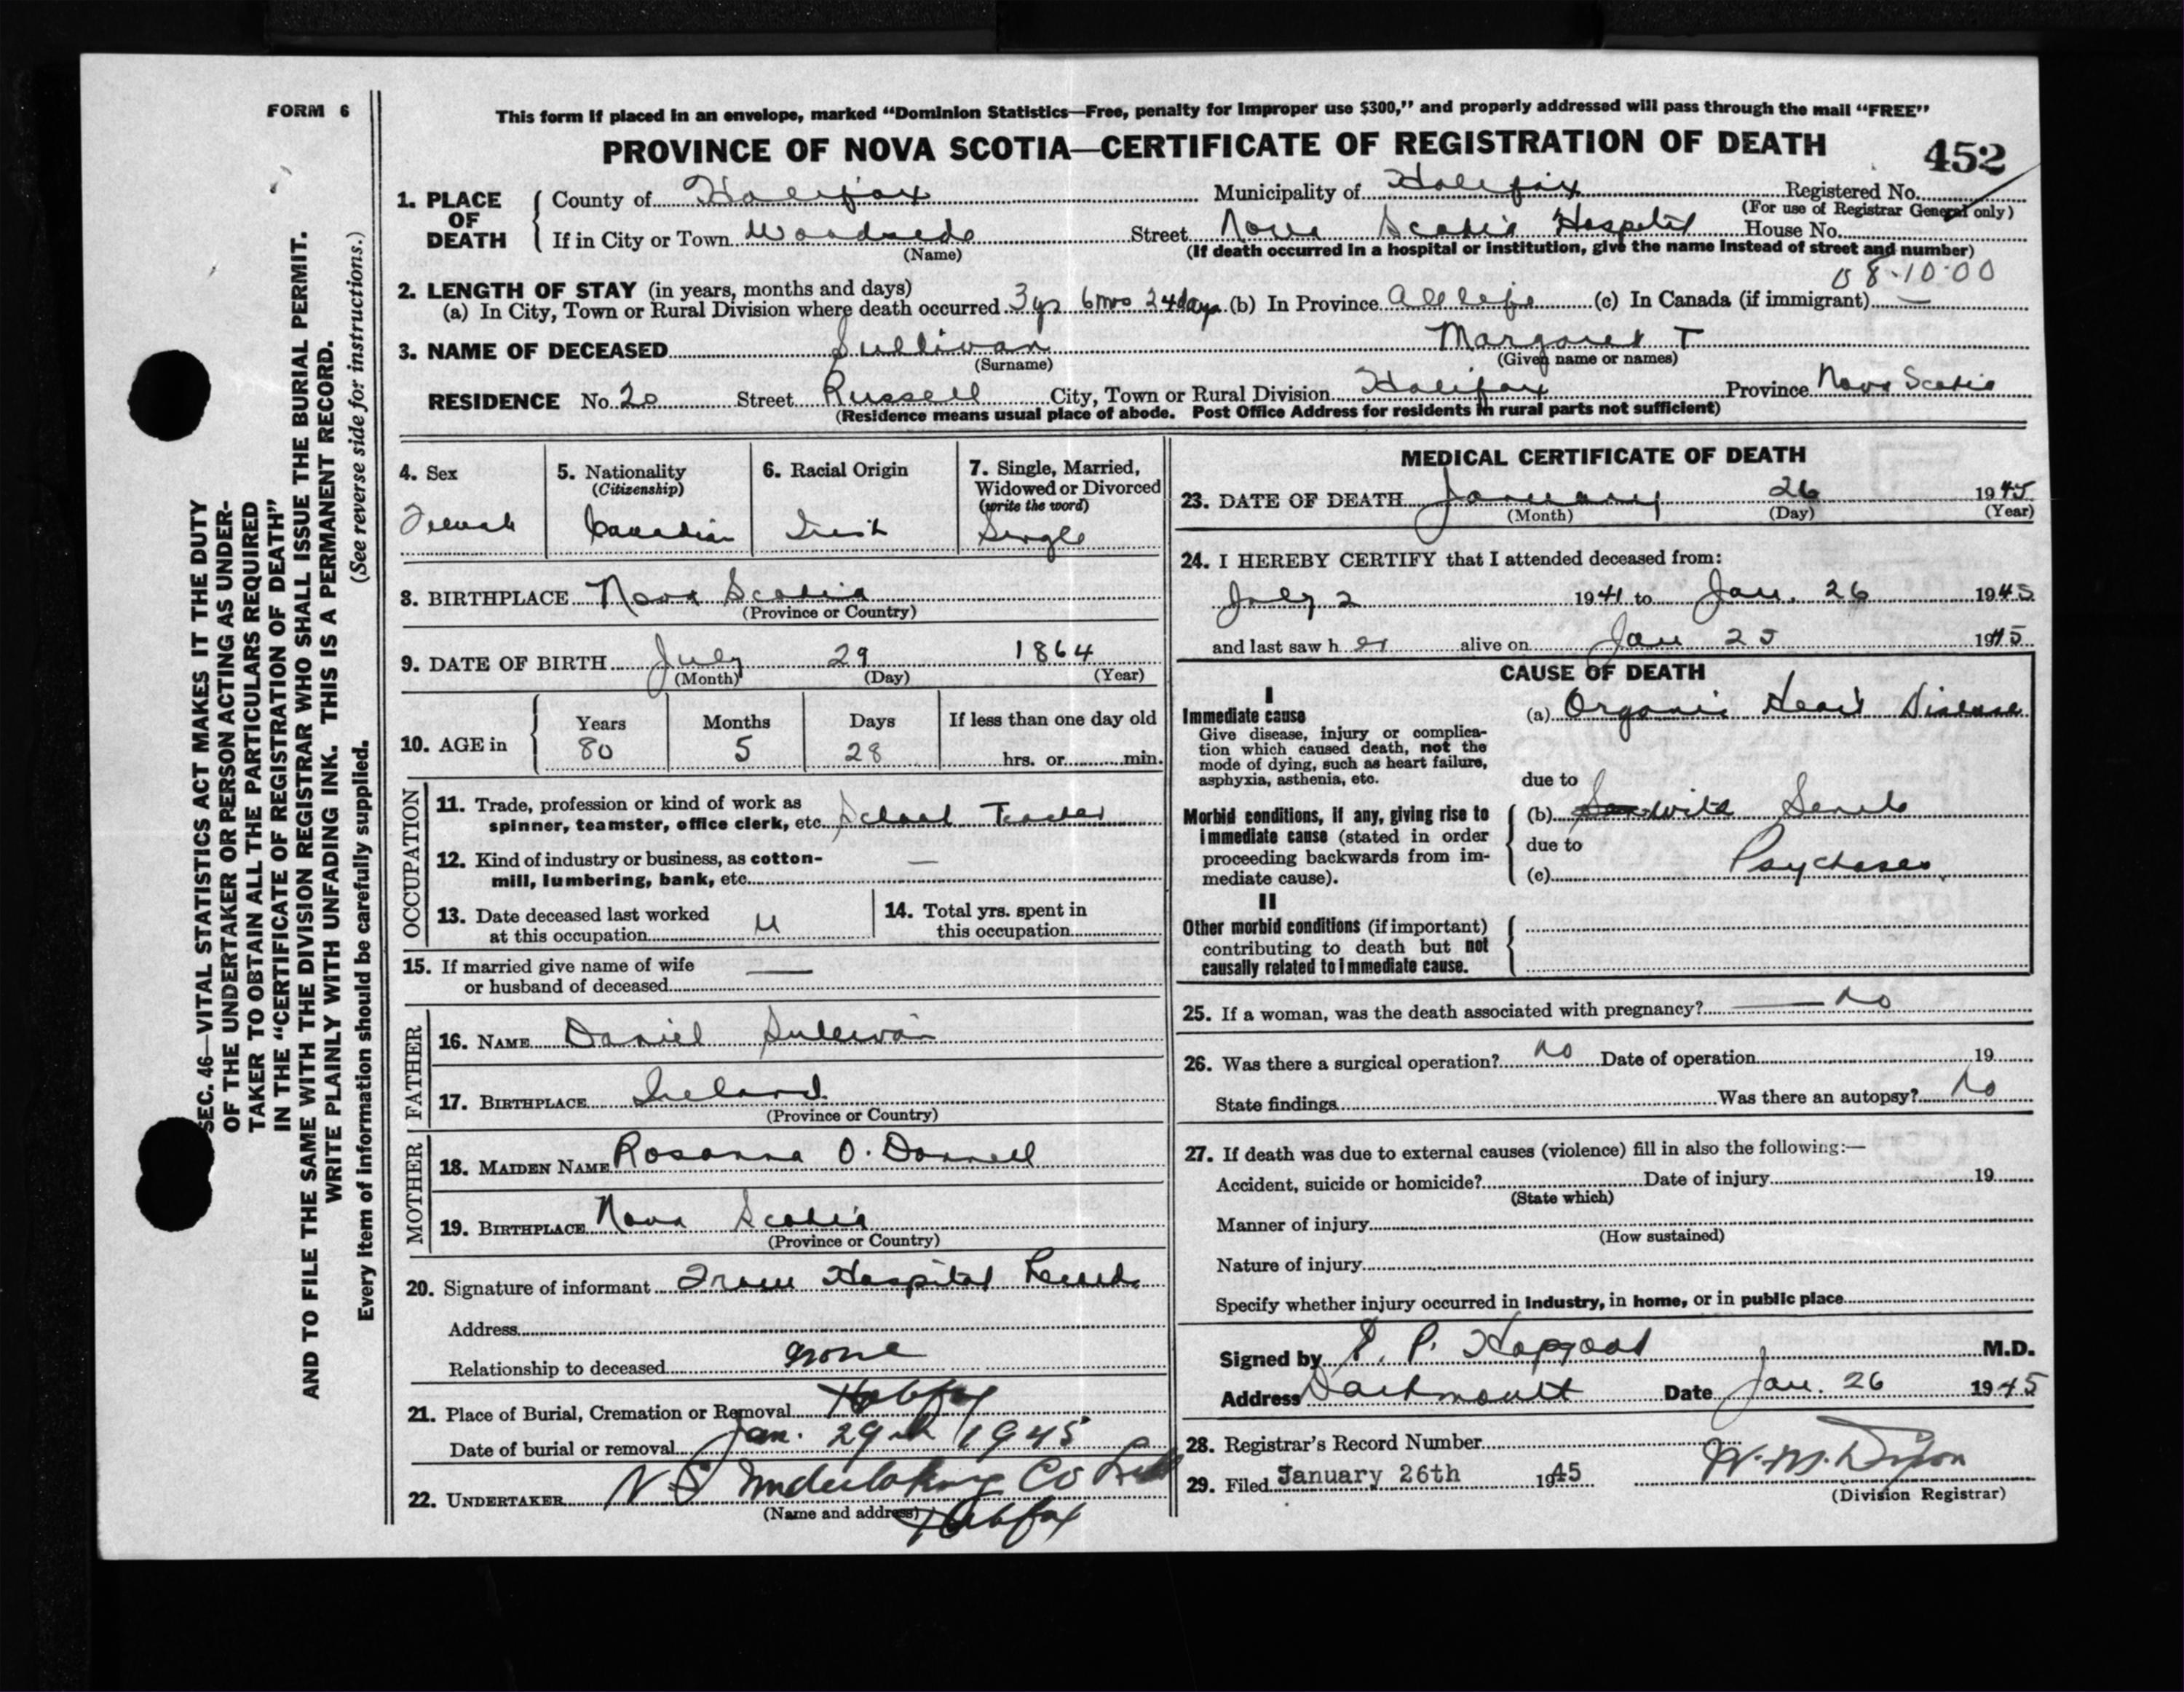 FORM 6
This form if placed in an envelope, marked “Dominion Statistics—Free, penalty for improper use $300,” and properly addressed will pass through the mail “FREE”
PROVINCE OF NOVA SCOTIA—CERTIFICATE OF REGISTRATION OF DEATH
452
1. PLACE OF DEATH
County of Halifax Municipality of Halifax Registered No.
(For use of Registrar General only)
If in City or Town Woodside Street Nova Scotia Hospital House No.
(Name) (If death occurred in a hospital or institution, give the name instead of street and number)
8-10-00
2. LENGTH OF STAY (in years, months and days)
(a) In City, Town or Rural Division where death occurred 3 ys 6 mos 24 days (b) In Province All life (c) In Canada (if immigrant) —
3. NAME OF DECEASED Sullivan Margaret T
(Surname) (Given name or names)
RESIDENCE No. 20 Street Russell City, Town or Rural Division Halifax Province Nova Scotia
(Residence means usual place of abode. Post Office Address for residents in rural parts not sufficient)
4. Sex
Female
5. Nationality
(Citizenship)
Canadian
6. Racial Origin
Irish
7. Single, Married,
Widowed or Divorced
(write the word)
Single
8. BIRTHPLACE Nova Scotia
(Province or Country)
9. DATE OF BIRTH July 29 1864
(Month) (Day) (Year)
10. AGE in
Years Months Days If less than one day old
80 5 28 hrs. or min.
OCCUPATION
11. Trade, profession or kind of work as
spinner, teamster, office clerk, etc. School Teacher
12. Kind of industry or business, as cotton- —
mill, lumbering, bank, etc.
13. Date deceased last worked
at this occupation U
14. Total yrs. spent in
this occupation
15. If married give name of wife —
or husband of deceased
FATHER
16. NAME Daniel Sullivan
17. BIRTHPLACE Ireland
(Province or Country)
MOTHER
18. MAIDEN NAME Rosanna O. Donnell
19. BIRTHPLACE Nova Scotia
(Province or Country)
20. Signature of informant From Hospital Records
Address
Relationship to deceased none
21. Place of Burial, Cremation or Removal Halifax
Date of burial or removal Jan. 29th 1945
22. UNDERTAKER N S Undertaking Co Ltd
(Name and address) Halifax
MEDICAL CERTIFICATE OF DEATH
23. DATE OF DEATH January 26 1945
(Month) (Day) (Year)
24. I HEREBY CERTIFY that I attended deceased from:
July 2 1941 to Jan. 26 1945
and last saw her alive on Jan 25 1945
CAUSE OF DEATH
I
Immediate cause
Give disease, injury or complica-
tion which caused death, not the
mode of dying, such as heart failure,
asphyxia, asthenia, etc.
(a) Organic Heart Disease
due to
Morbid conditions, if any, giving rise to
immediate cause (stated in order
proceeding backwards from im-
mediate cause).
(b) with Senile
due to
(c) Psychoses
II
Other morbid conditions (if important)
contributing to death but not
causally related to immediate cause.
25. If a woman, was the death associated with pregnancy? — no
26. Was there a surgical operation? no Date of operation 19
State findings Was there an autopsy? no
27. If death was due to external causes (violence) fill in also the following:—
Accident, suicide or homicide? Date of injury 19
(State which)
Manner of injury
(How sustained)
Nature of injury
Specify whether injury occurred in industry, in home, or in public place
Signed by Hopgood M.D.
Address Dartmouth Date Jan. 26 1945
28. Registrar's Record Number
29. Filed January 26th 1945 W. M. Dixon
(Division Registrar)
SEC. 46—VITAL STATISTICS ACT MAKES IT THE DUTY
OF THE UNDERTAKER OR PERSON ACTING AS UNDER-
TAKER TO OBTAIN ALL THE PARTICULARS REQUIRED
IN THE “CERTIFICATE OF REGISTRATION OF DEATH”
AND TO FILE THE SAME WITH THE DIVISION REGISTRAR WHO SHALL ISSUE THE BURIAL PERMIT.
WRITE PLAINLY WITH UNFADING INK. THIS IS A PERMANENT RECORD.
Every item of information should be carefully supplied. (See reverse side for instructions.)